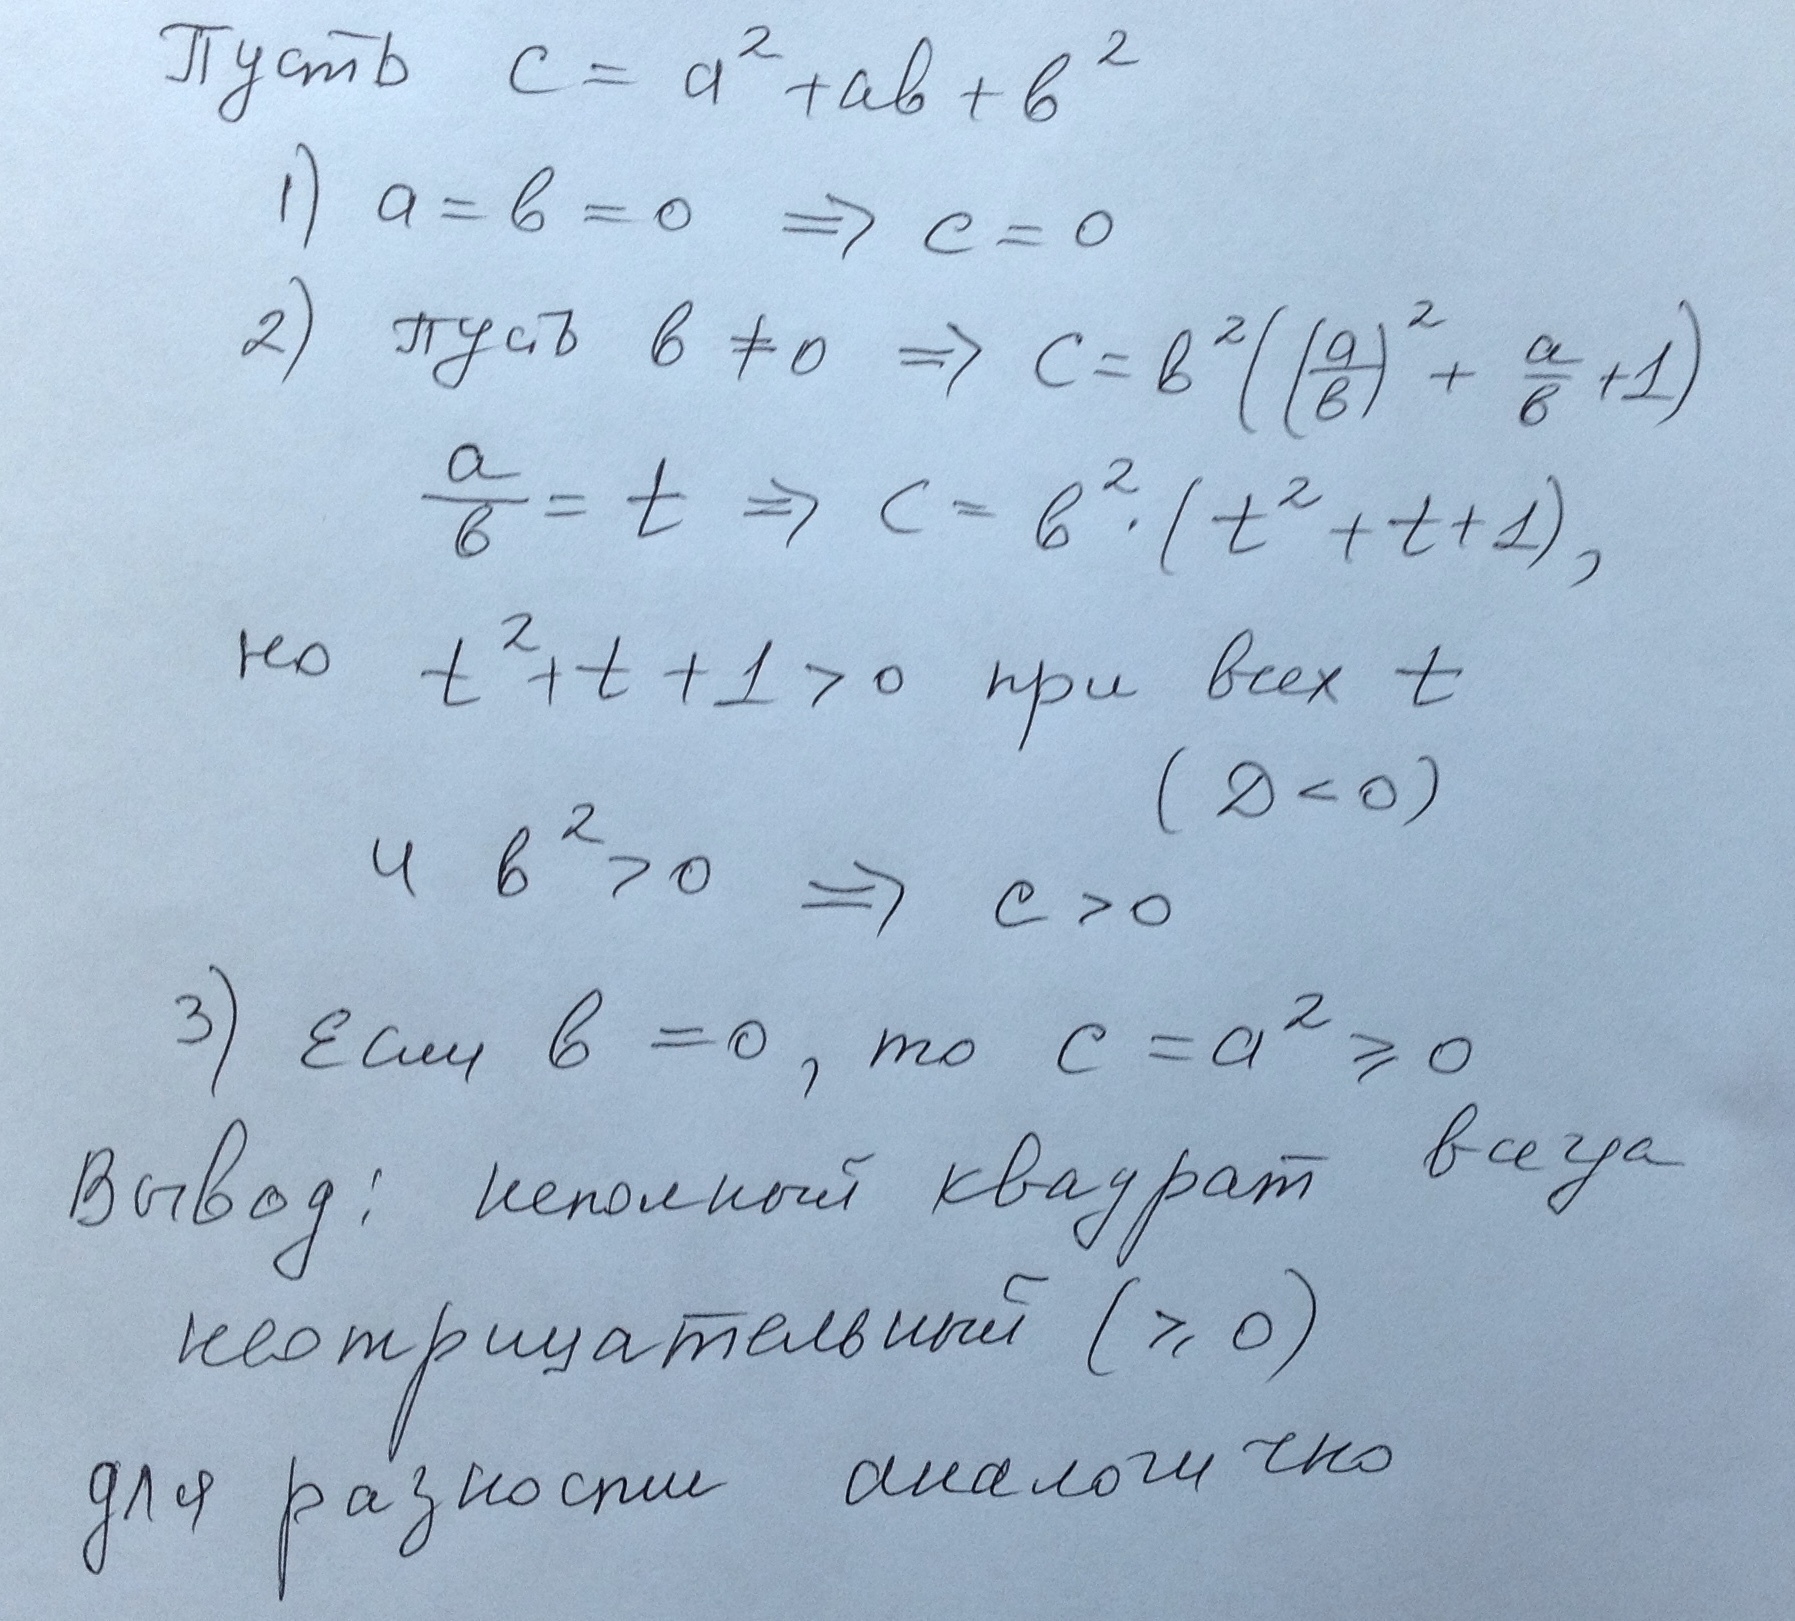 Пусть c = a² + ab + b²
1) a = b = 0 ⇒ c = 0
2) пусть b ≠ 0 ⇒ c = b²((a/b)² + a/b + 1)
a/b = t ⇒ c = b² · (t² + t + 1),
но t² + t + 1 > 0 при всех t
(D < 0)
и b² > 0 ⇒ c > 0
3) Если b = 0, то c = a² ⩾ 0
Вывод: неполный квадрат всегда
неотрицательный (⩾ 0)
для разности аналогично